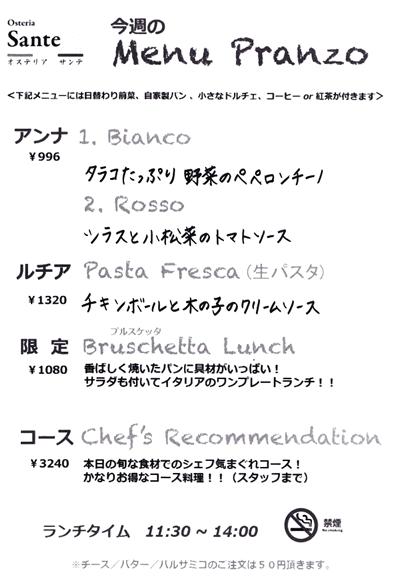 Osteria
Sante
オステリア サンテ
今週の
Menu Pranzo
＜下記メニューには日替わり前菜、自家製パン、小さなドルチェ、コーヒー or 紅茶が付きます＞
アンナ 1. Bianco
￥996
タラコたっぷり 野菜のペペロンチーノ
2. Rosso
シラスと小松菜のトマトソース
ルチア Pasta Fresca（生パスタ）
￥1320
チキンボールと木の子のクリームソース
ブルスケッタ
限 定 Bruschetta Lunch
￥1080
香ばしく焼いたパンに具材がいっぱい！
サラダも付いてイタリアのワンプレートランチ！！
コース Chef's Recommendation
￥3240
本日の旬な食材でのシェフ気まぐれコース！
かなりお得なコース料理！！（スタッフまで）
ランチタイム 11:30 ~ 14:00
禁煙
No smoking
※チーズ／バター／バルサミコのご注文は５０円頂きます。